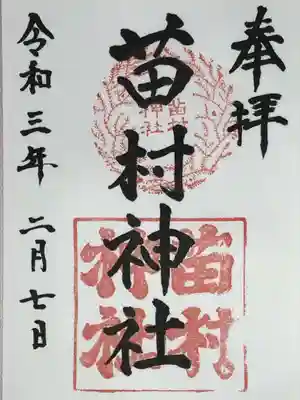 奉拝
苗村神社
令和三年 二月七日
苗村
神社
苗村
神社